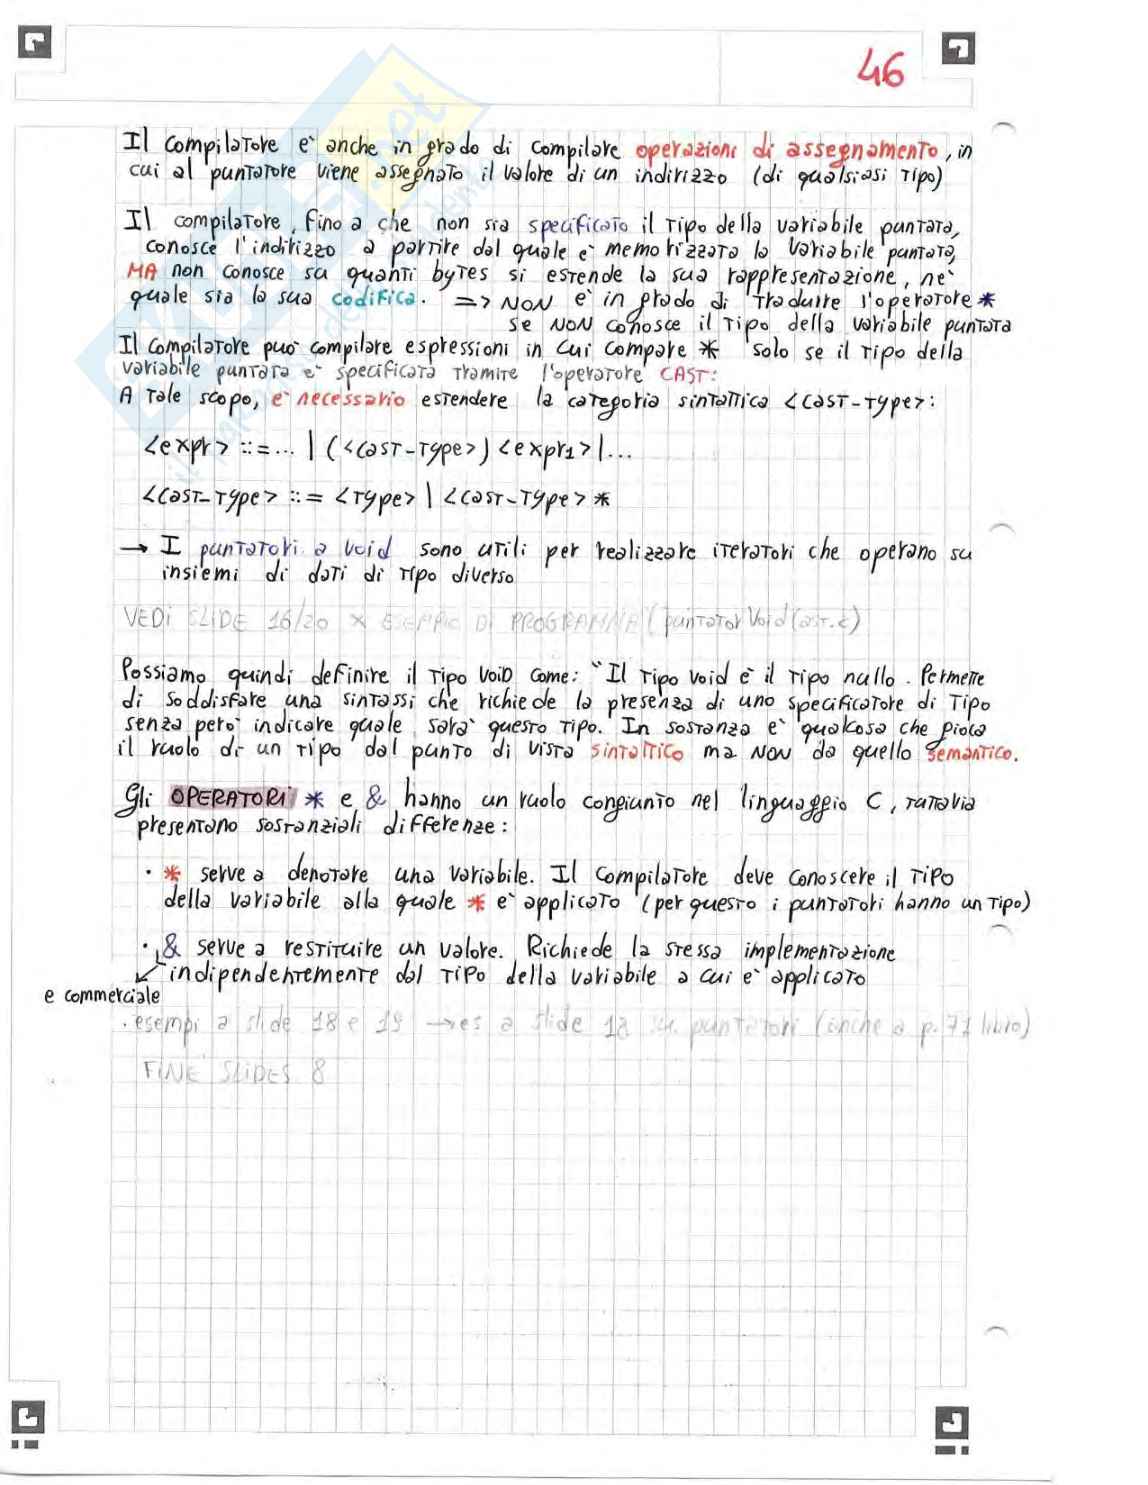 46
Il compilatore e' anche in grado di compilare operazioni di assegnamento, in
cui al puntatore viene assegnato il valore di un indirizzo (di qualsiasi tipo)
Il compilatore, fino a che non sia specificato il tipo della variabile puntata,
conosce l'indirizzo a partire dal quale e' memorizzata la variabile puntata,
MA non conosce su quanti bytes si estende la sua rappresentazione, ne'
quale sia la sua codifica. => NON e' in grado di tradurre l'operatore *
se NON conosce il tipo della variabile puntata
Il compilatore puo' compilare espressioni in cui compare * solo se il tipo della
variabile puntata e' specificata tramite l'operatore CAST:
A tale scopo, e' necessario estendere la categoria sintattica <cast-type>:
<expr> ::=... | (<cast-type>) <expr1>|...
<cast-type> ::= <type> | <cast-type> *
→ I puntatori a void sono utili per realizzare iteratori che operano su
insiemi di dati di tipo diverso
VEDI SLIDE 16/20 x ESEMPIO DI PROGRAMMA (puntatorVoidCast.c)
Possiamo quindi definire il tipo VOID come: "Il tipo void è il tipo nullo. Permette
di soddisfare una sintassi che richiede la presenza di uno specificatore di tipo
senza pero' indicare quale sara' questo tipo. In sostanza e' qualcosa che gioca
il ruolo di un tipo dal punto di vista sintattico ma NON da quello semantico.
Gli OPERATORI * e & hanno un ruolo congiunto nel linguaggio C, tuttavia
presentano sostanziali differenze:
· * serve a denotare una variabile. Il compilatore deve conoscere il tipo
della variabile alla quale * e' applicato (per questo i puntatori hanno un tipo)
· & serve a restituire un valore. Richiede la stessa implementazione
indipendentemente dal tipo della variabile a cui e' applicato
e commerciale
· esempi a slide 18 e 19 → es a slide 12 puntatori (anche a p. 71 libro)
FINE SLIDES 8